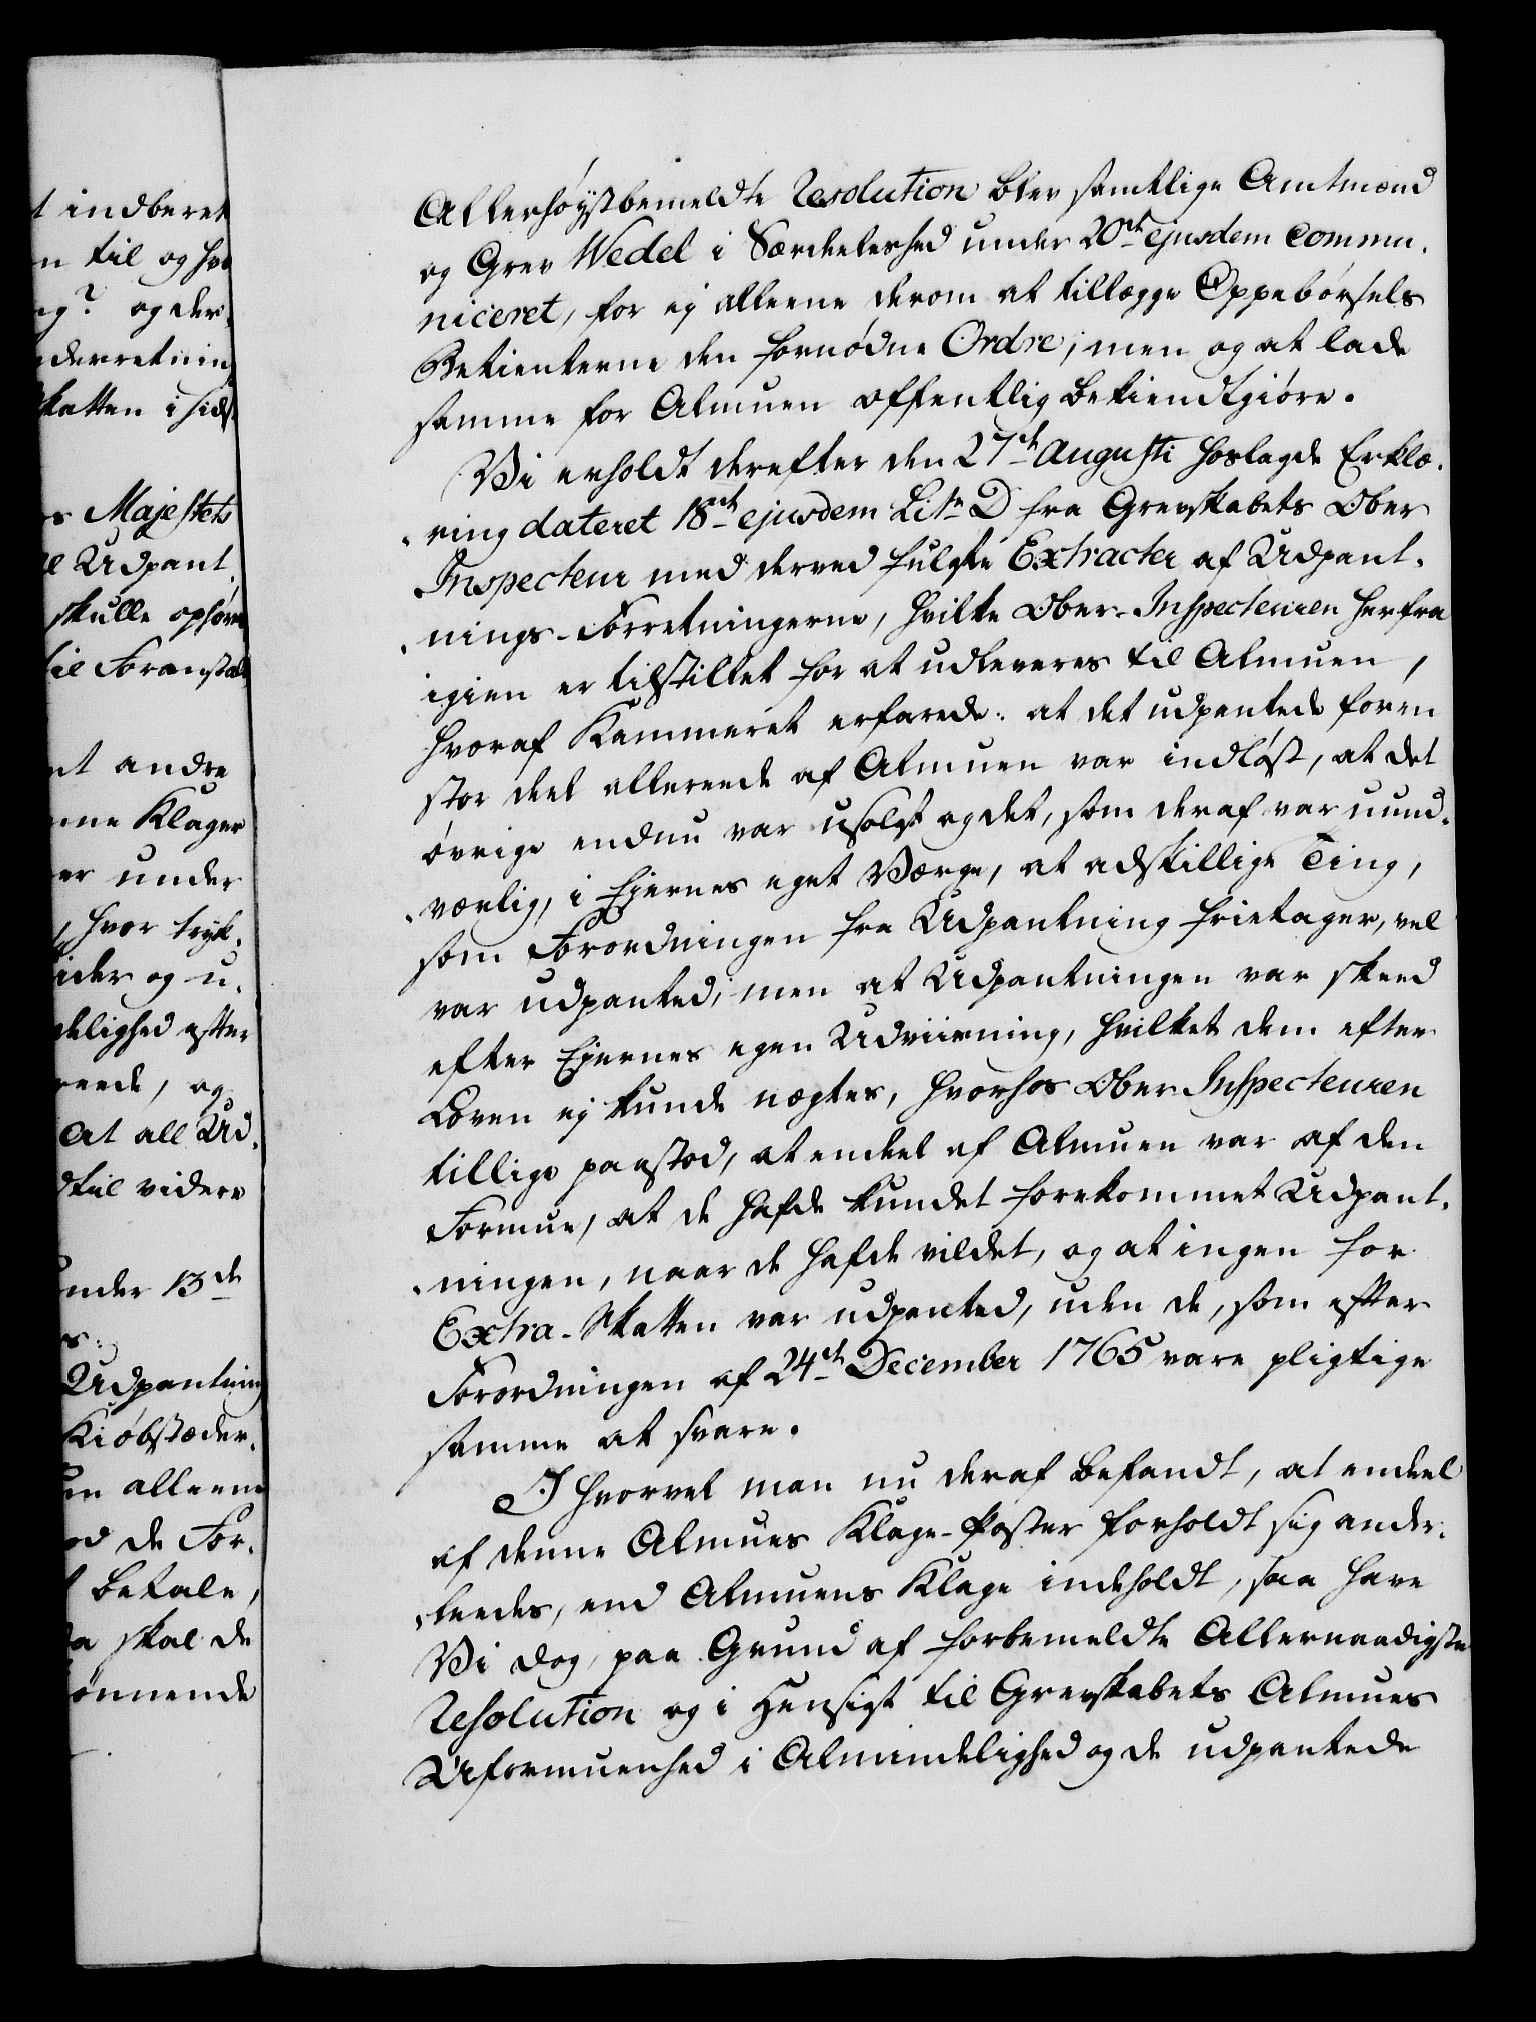 t indberet
n til og hvo
ng? og der,
nderretnin
katten i sids
s Majestets
l Udpant
skulle ophøre
til Foranstal
nt andre
nne Klager
er under
hvor tryk,
ider og u,
delighed efter
reede, og
at all Ud,
dtil videre
under 13de
s:
Udpantning
Kiøbstæder,
en alleene
d de For,
betale,
a skal de
ønnende
Allerhøystbemeldte Resolution blev samtlige Amtmænd
og Grev Wedel i Særdeeleshed under 20de ejusdem commu,
niceret, for ej alleene derom at tillægge Oppebørsels
Betienterne den fornødne Ordre; men og at lade
samme for Almuen offentlig bekiendtgiøre.
Vi erholdt derefter den 27de Augusti hoslagde Erklæ,
,ring dateret 18de ejusdem Litr D fra Grevskabets Ober
Inspecteur med derved fulgte Extracter af Udpant,
,nings-Forretningerne, hvilke Ober-Inspecteuren herfra
igien er tilstillet for at udleveres til Almuen,
hvoraf Kammeret erfarede: at det udpantede for en
stor deel allereede af Almuen var indløst, at det
øvrige endnu var usolgt og det, som deraf var uund,
,værlig, i Ejernes eget Værge, at adskillige Ting,
som Forordningen fra Udpantning frietager, vel
var udpanted; men at Udpantningen var skeed
efter Ejernes egen Udviisning, hvilket dem efter
Loven ej kunde nægtes, hvorhos Ober Inspecteuren
tillige paastod, at endeel af Almuen var af den
Formue, at de hafde kundet forekommet Udpant,
,ningen, naar de hafde vildet, og at ingen for
Extra-Skatten var udpanted, uden de, som efter
Forordningen af 24de December 1765 vare pligtige
samme at svare.
I hvorvel man nu deraf befandt, at endeel
af denne Almues Klage-Poster forholdt sig ander,
,leedes, end Almuens Klage indeholdt, saa have
Vi dog, paa Grund af forbemeldte Allernaadigste
Resolution og i Hensigt til Grevskabets Almues
Uformuenhed i Almindelighed og de udpantede